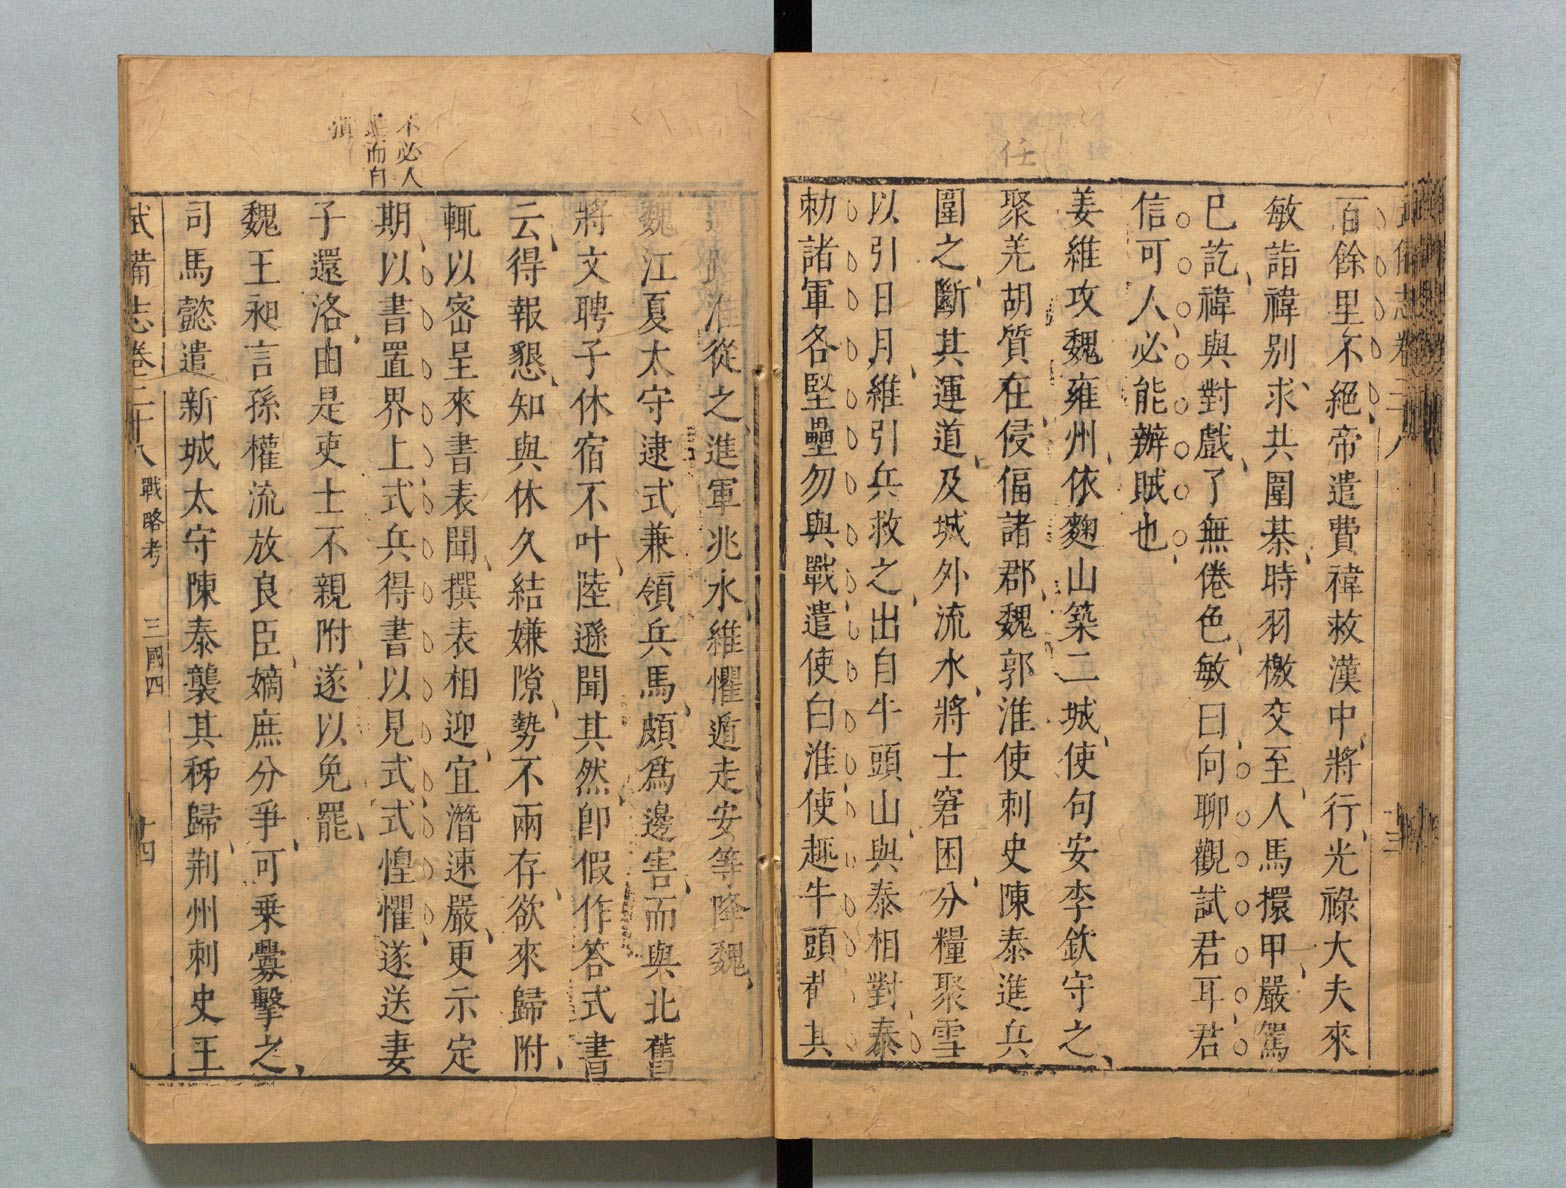 任
百餘里不絕帝遣費禕救漢中將行光祿大夫來
敏詣禕別求共圍棊時羽檄交至人馬擐甲嚴駕
已訖禕與對戲了無倦色敏曰向聊觀試君耳君
信可人必能辦賊也
姜維攻魏雍州依麴山築二城使句安李歆守之
聚羌胡質任侵偪諸郡魏郭淮使刺史陳泰進兵
圍之斷其運道及城外流水將士窘困分糧聚雪
以引日月維引兵救之出自牛頭山與泰相對泰
勅諸軍各堅壘勿與戰遣使白淮使趣牛頭截其
淮從之進軍洮水維懼遁走安等降魏
魏江夏太守逮式兼領兵馬頗爲邊害而與北舊
將文聘子休宿不叶陸遜聞其然卽假作答式書
云得報懇知與休久結嫌隙勢不兩存欲來歸附
輒以密呈來書表聞撰表相迎宜潛速嚴更示定
期以書置界上式兵得書以見式式惶懼遂送妻
子還洛由是吏士不親附遂以免罷
魏王昶言孫權流放良臣嫡庶分爭可乘釁擊之
司馬懿遣新城太守陳泰襲其秭歸荆州刺史王
不必人
進而自
潰
武備志卷三十八 戰略考 三國四 十四